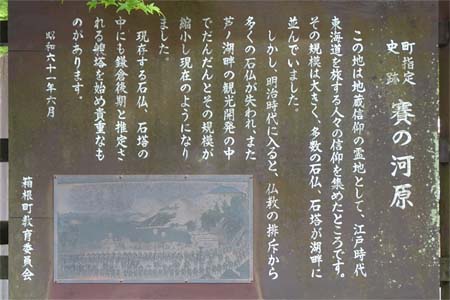 町指定
史跡
賽の河原
この地は地蔵信仰の霊地として、江戸時代
東海道を旅する人々の信仰を集めたところです。
その規模は大きく、多数の石仏、石塔が湖畔に
並んでいました。
しかし、明治時代に入ると、仏教の排斥から
多くの石仏が失われ、また
芦ノ湖畔の観光開発の中
でだんだんとその規模が
縮小し現在のようになり
ました。
現存する石仏、石塔の
中にも鎌倉後期と推定さ
れる塔を始め貴重なも
のがあります。
昭和六十一年六月
箱根町教育委員会